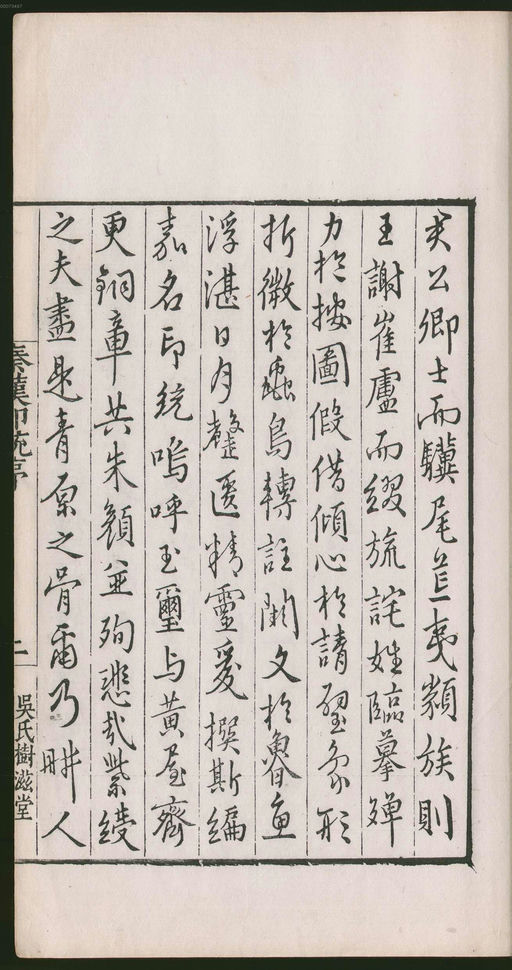 公卿士而驥尾夷類族則
王謝崔盧而綴旒詫姓臨摹殫
力於按圖假借傾心於請璧象形
折微於蟲鳥轉註闕文於魯魚
浮湛日月聾匿精靈爰撰斯編
嘉名印統嗚呼玉璽与黃屋齊
更銅章共朱顏並殉悲哉紫綬
之夫盡是青原之骨而乃耕人
秦漢印統序
二
吳氏樹滋堂
00073487